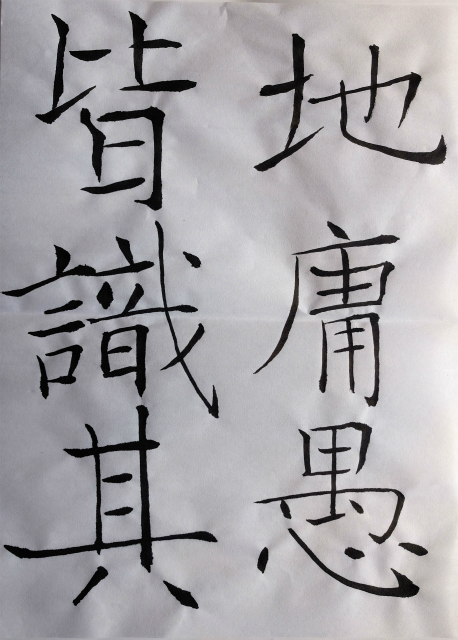 地庸愚
皆識其